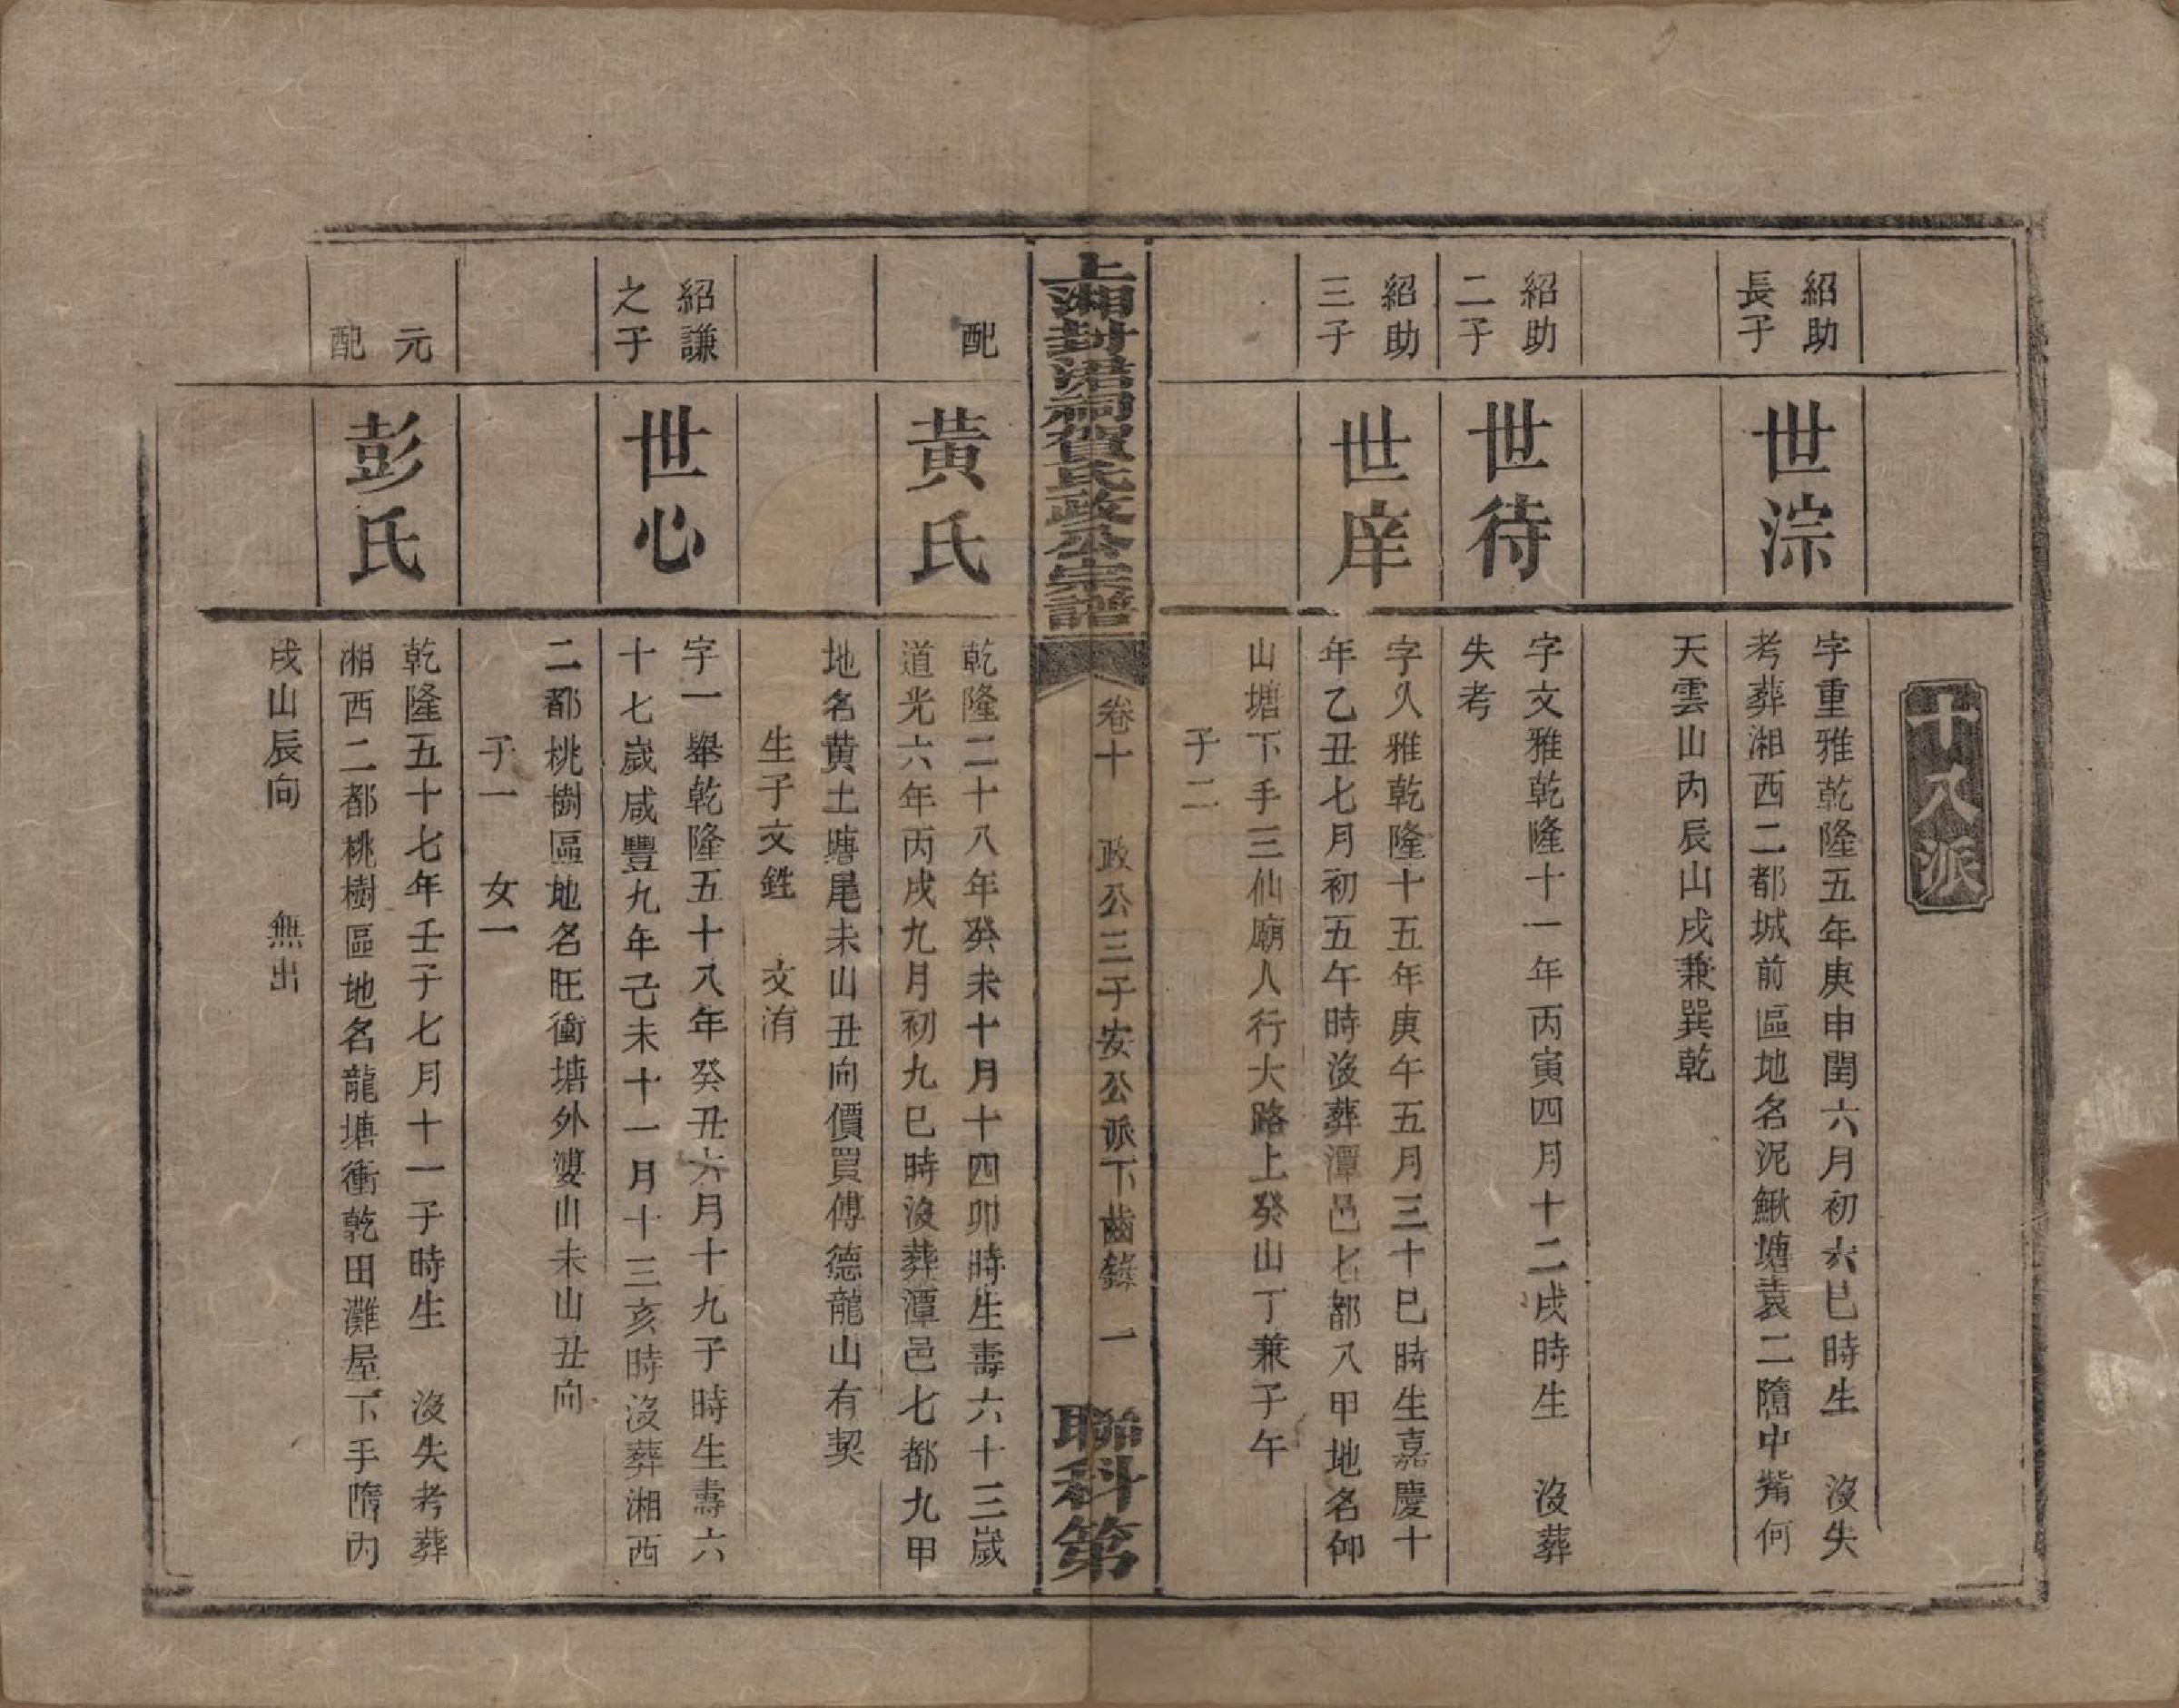 十八派
紹助
長子
世淙
字重雅乾隆五年庚申閏六月初六巳時生　沒失
考葬湘西二都城前區地名泥鰍塘袁二隋中觜何
天雲山內辰山戌兼巽乾
紹助
二子
世待
字文雅乾隆十一年丙寅四月十二戌時生　沒葬
失考
紹助
三子
世庠
字久雅乾隆十五年庚午五月三十巳時生嘉慶十
年乙丑七月初五午時沒葬潭邑七都八甲地名仰
山塘下手三仙廟人行大路上癸山丁兼子午
子二
上湘封浯洞賀氏政公宗譜
卷十　政公三子安公派下齒錄　一
聯科第
配
黃氏
乾隆二十八年癸未十月十四卯時生壽六十三歲
道光六年丙戌九月初九巳時沒葬潭邑七都九甲
地名黃土塘尾未山丑向價買傅德龍山有契
生子文銋　文洧
紹謙
之子
世心
字一舉乾隆五十八年癸丑六月十九子時生壽六
十七歲咸豐九年己未十一月十三亥時沒葬湘西
二都桃樹區地名旺衝塘外婆山未山丑向
子一　女一
元
配
彭氏
乾隆五十七年壬子七月十一子時生　沒失考葬
湘西二都桃樹區地名龍塘衝乾田灘屋下手隋內
戌山辰向　無出